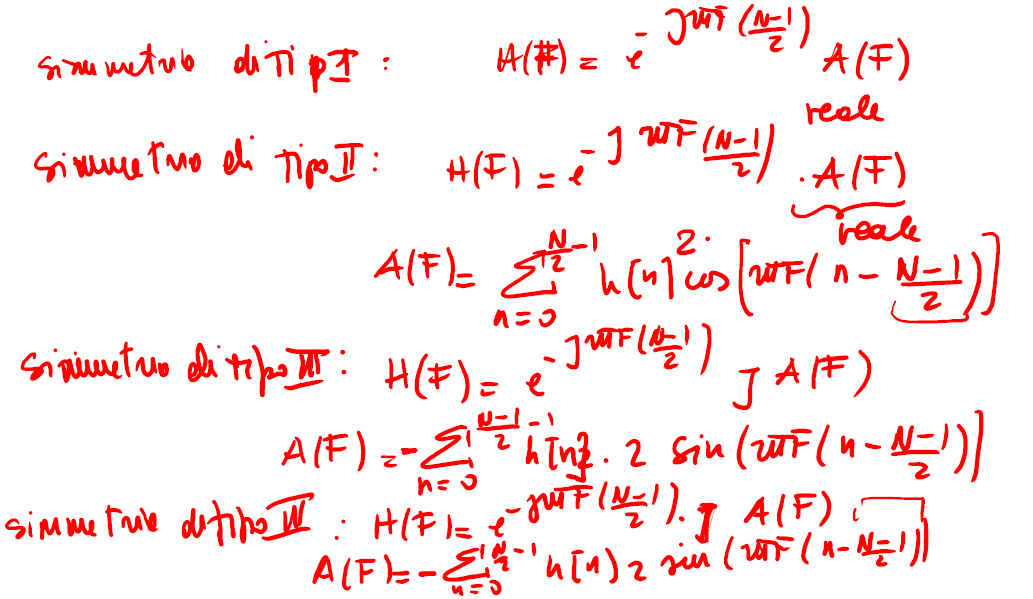 simmetria di Tipo I : H(F) = e^{-j2πF(\frac{N-1}{2})} A(F)
reale
simmetria di tipo II : H(F) = e^{-j2πF(\frac{N-1}{2})} · A(F)
reale
A(F) = \sum_{n=0}^{\frac{N}{2}-1} h[n] 2· cos[2πF(n - \frac{N-1}{2})]
simmetria di tipo III : H(F) = e^{-j2πF(\frac{N-1}{2})} j A(F)
A(F) = -\sum_{n=0}^{\frac{N-1}{2}-1} h[n] · 2 sin(2πF(n - \frac{N-1}{2}))
simmetria di tipo IV : H(F) = e^{-j2πF(\frac{N-1}{2})} · j A(F)
A(F) = -\sum_{n=0}^{\frac{N}{2}-1} h[n] 2 sin(2πF(n - \frac{N-1}{2}))